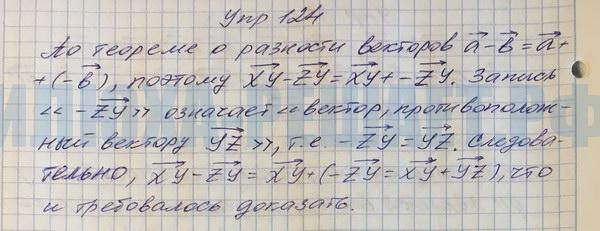 Упр 124
По теореме о разности векторов a⃗-b⃗=a⃗+
+(-b⃗), поэтому XY⃗-ZY⃗=XY⃗+-ZY⃗. Запись
"-ZY⃗" означает "вектор, противополож-
ный вектору YZ⃗", т.е. -ZY⃗=YZ⃗. Следова-
тельно, XY⃗-ZY⃗=XY⃗+(-ZY⃗=XY⃗+YZ⃗), что
и требовалось доказать.